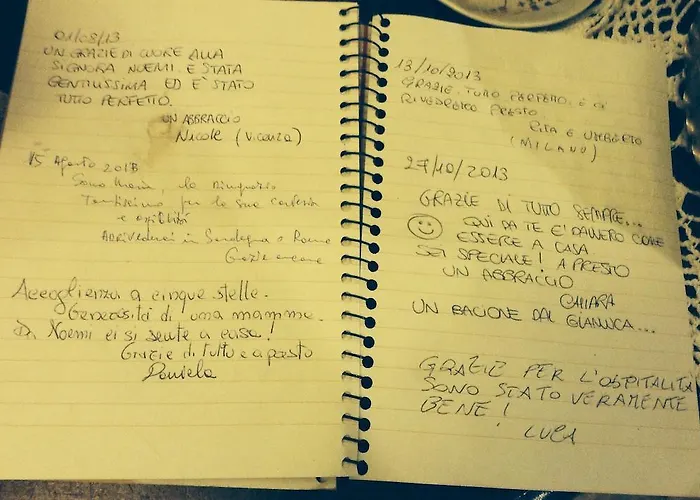 01/08/13
UN GRAZIE DI CUORE ALLA
SIGNORA NOEMI. E STATA
GENTILISSIMA ED E' STATO
TUTTO PERFETTO.
UN ABBRACCIO
Nicole (Vicenza)
15 Agosto 2013
Sono Maria, la ringrazio
Tantissimo per la sua cortesia
e
Arrivederci in Sardegna o Roma
Grazie ancora
Accoglienza a cinque stelle.
Generosità di una mamma.
Da Noemi ci si sente a casa!
Grazie di tutto e a presto
Daniela
13/10/2013
GRAZIE, TUTTO PERFETTO. E CI
RIVEDREMO PRESTO
RITA E UMBERTO
(MILANO)
27/10/2013
GRAZIE DI TUTTO SEMPRE...
QUI DA TE E' DAVVERO COME
ESSERE A CASA
SEI SPECIALE! A PRESTO
UN ABBRACCIO
CHIARA
UN BACIONE DAL GIANLUCA...
GRAZIE PER L'OSPITALITÀ
SONO STATO VERAMENTE
BENE!
LUCA